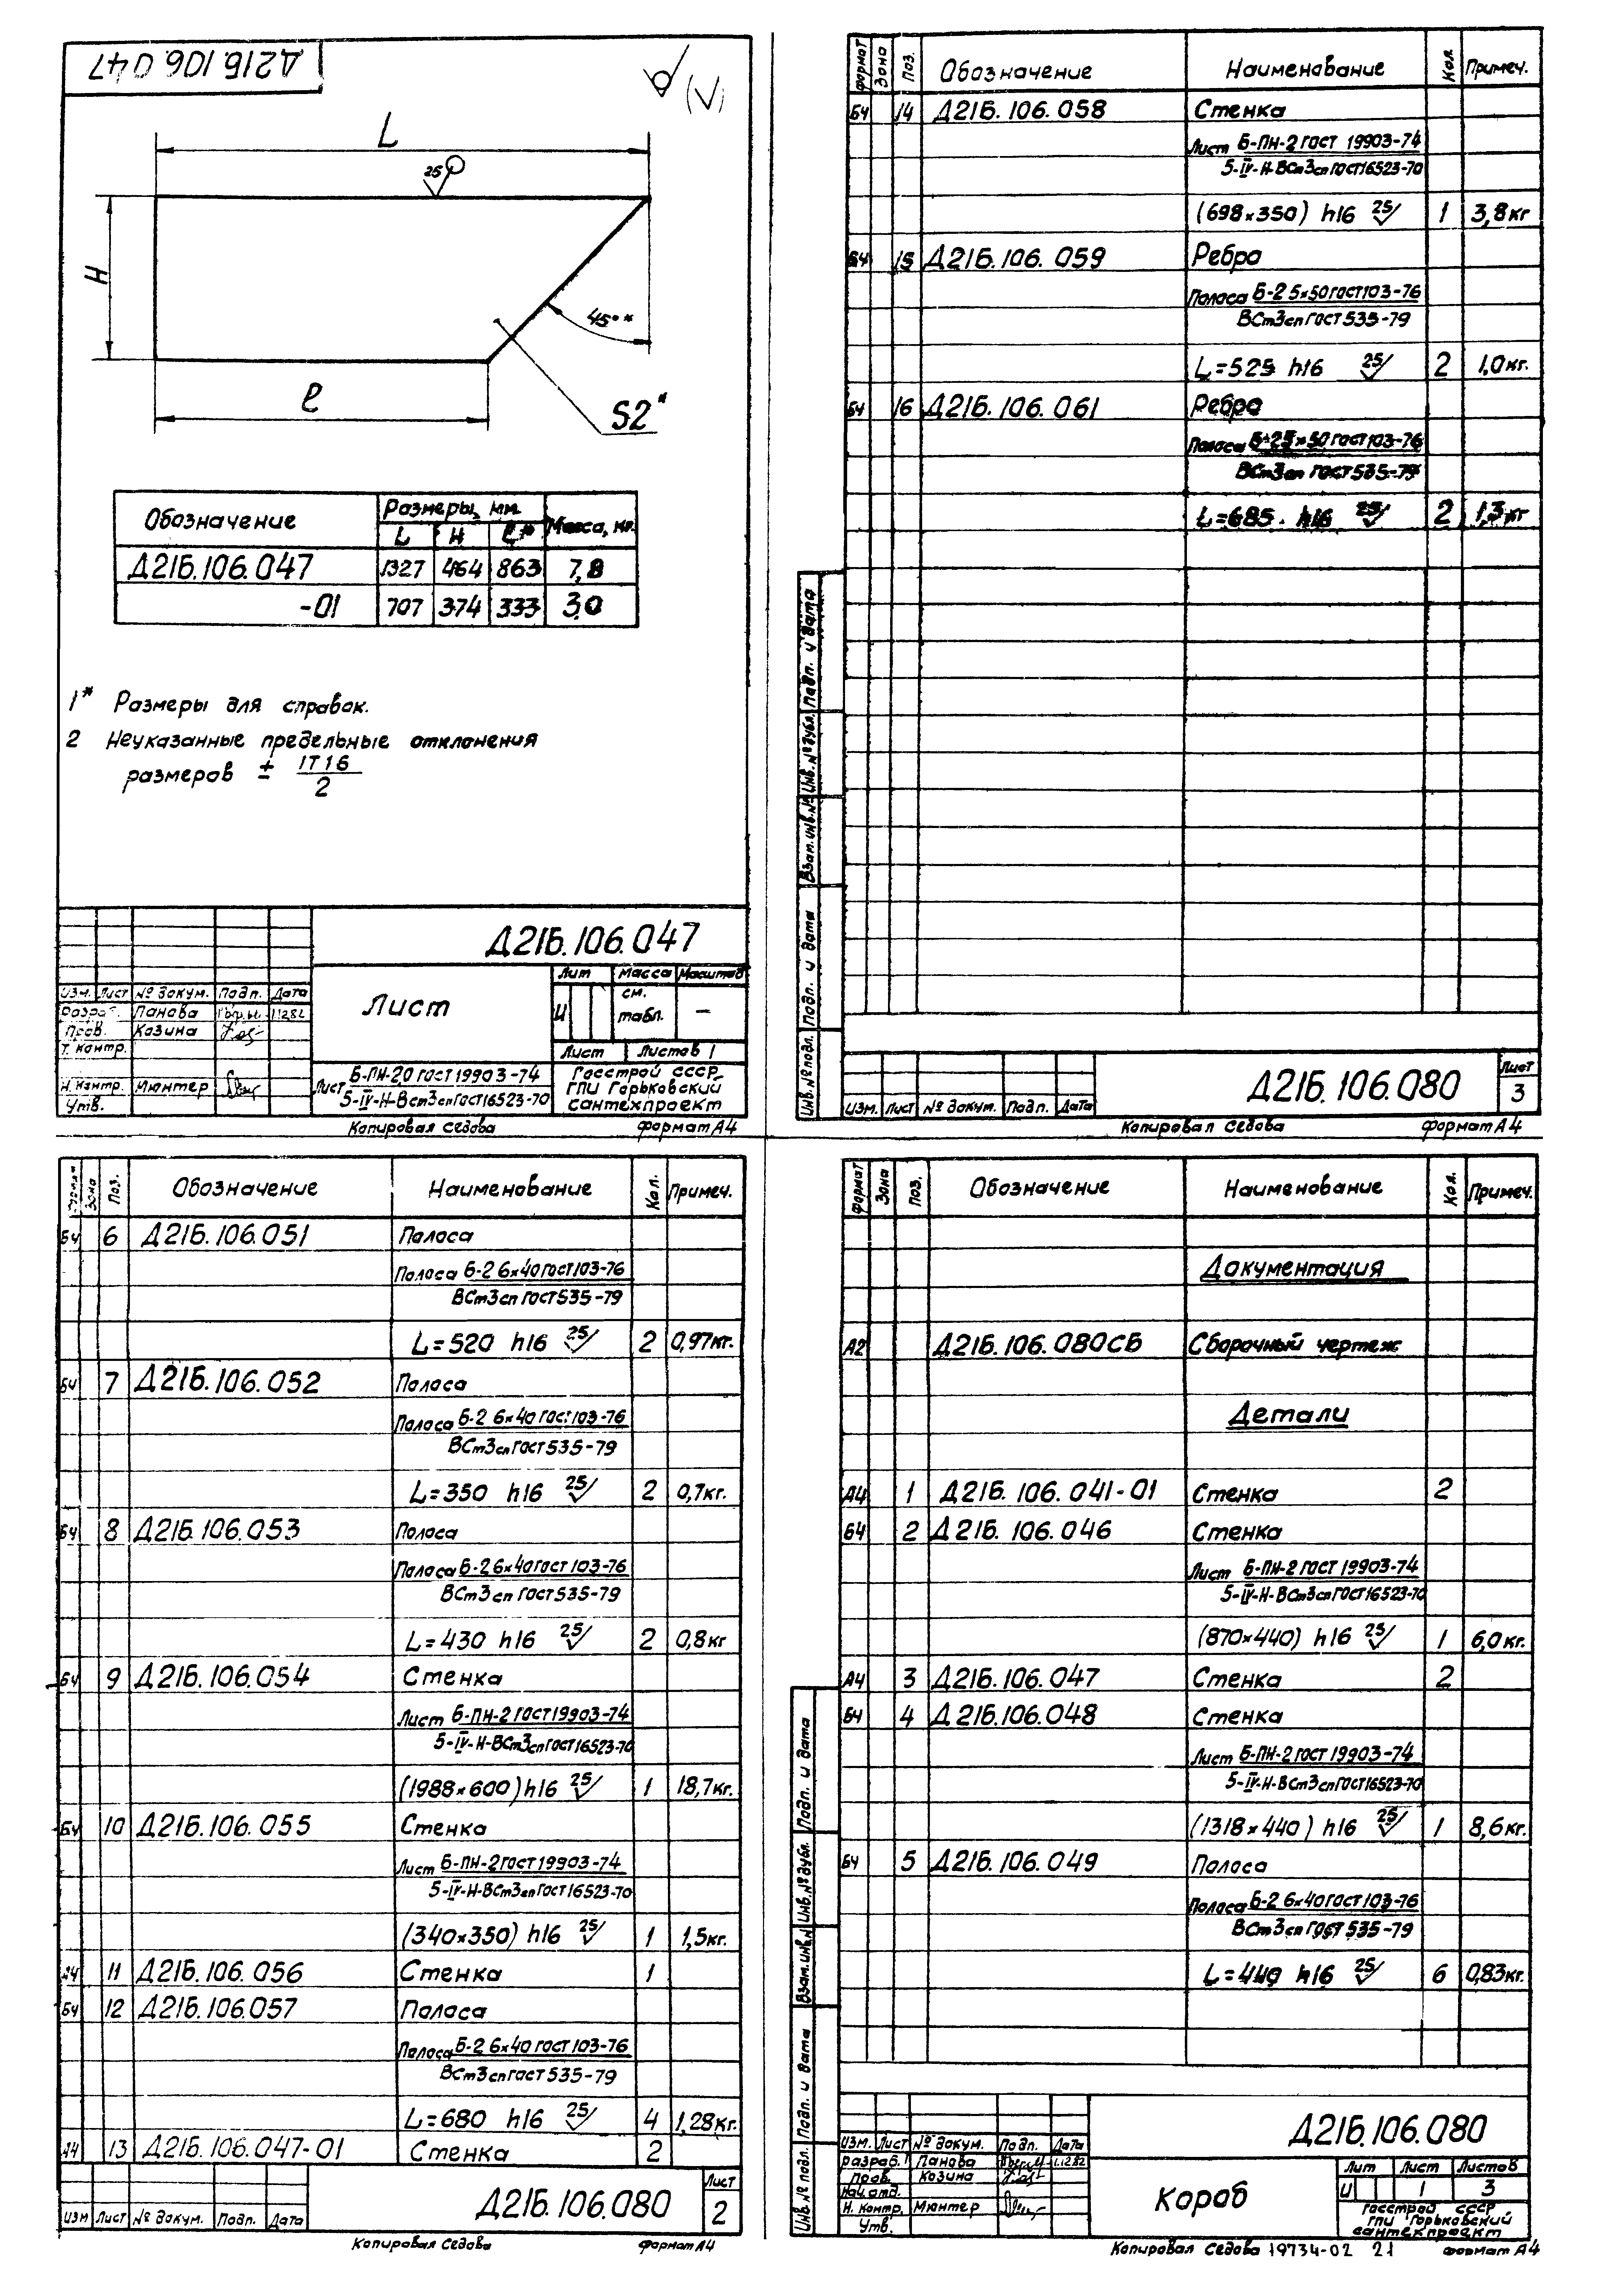 Д21Б.106.047
(√)
L
25
H
45°*
ℓ
S2*
Обозначение Размеры, мм. Масса, кг.
L H ℓ*
Д21Б.106.047 1327 464 863 7,8
-01 707 374 333 3,0
1* Размеры для справок.
2 Неуказанные предельные отклонения
размеров ± IT16/2
Д21Б.106.047
Лист
Лит Масса Масштаб
И см. табл. —
Лист Листов 1
Изм. Лист № докум. Подп. Дата
Разраб. Панова 1.12.82
Пров. Казина
Т. контр.
Н. контр. Мюнтер
Утв.
Лист Б-ПН-20 ГОСТ 19903-74
5-IV-Н-ВСт3сп ГОСТ 16523-70
Госстрой СССР
ГПИ Горьковский
сантехпроект
Копировал Седова формат А4
формат Зона Поз. Обозначение Наименование Кол. Примеч.
БЧ 14 Д21Б.106.058 Стенка
Лист Б-ПН-2 ГОСТ 19903-74
5-IV-Н-ВСт3сп ГОСТ 16523-70
(698×350) h16 25 1 3,8кг
БЧ 15 Д21Б.106.059 Ребро
Полоса Б-2 5×50 ГОСТ 103-76
ВСт3сп ГОСТ 535-79
L=525 h16 25 2 1,0кг.
БЧ 16 Д21Б.106.061 Ребро
Полоса Б-2 5×50 ГОСТ 103-76
ВСт3сп ГОСТ 535-79
L=685. h16 25 2 1,3кг
Подп. и дата
Инв. № дубл.
Взам. инв. №
Подп. и дата
Инв. № подл.
Изм. Лист № докум. Подп. Дата
Д21Б.106.080
Лист
3
Копировал Седова формат А4
формат Зона Поз. Обозначение Наименование Кол. Примеч.
БЧ 6 Д21Б.106.051 Полоса
Полоса Б-2 6×40 ГОСТ 103-76
ВСт3сп ГОСТ 535-79
L=520 h16 25 2 0,97кг.
БЧ 7 Д21Б.106.052 Полоса
Полоса Б-2 6×40 ГОСТ 103-76
ВСт3сп ГОСТ 535-79
L=350 h16 25 2 0,7кг.
БЧ 8 Д21Б.106.053 Полоса
Полоса Б-2 6×40 ГОСТ 103-76
ВСт3сп ГОСТ 535-79
L=430 h16 25 2 0,8кг
БЧ 9 Д21Б.106.054 Стенка
Лист Б-ПН-2 ГОСТ 19903-74
5-IV-Н-ВСт3сп ГОСТ 16523-70
(1988×600) h16 25 1 18,7кг.
БЧ 10 Д21Б.106.055 Стенка
Лист Б-ПН-2 ГОСТ 19903-74
5-IV-Н-ВСт3сп ГОСТ 16523-70
(340×350) h16 25 1 1,5кг.
А4 11 Д21Б.106.056 Стенка 1
БЧ 12 Д21Б.106.057 Полоса
Полоса Б-2 6×40 ГОСТ 103-76
ВСт3сп ГОСТ 535-79
L=680 h16 25 4 1,28кг.
А4 13 Д21Б.106.047-01 Стенка 2
Изм Лист № докум. Подп. Дата
Д21Б.106.080
Лист
2
Копировал Седова формат А4
формат Зона Поз. Обозначение Наименование Кол. Примеч.
Документация
А2 Д21Б.106.080СБ Сборочный чертеж
Детали
А4 1 Д21Б.106.041-01 Стенка 2
БЧ 2 Д21Б.106.046 Стенка
Лист Б-ПН-2 ГОСТ 19903-74
5-IV-Н-ВСт3сп ГОСТ 16523-70
(870×440) h16 25 1 6,0кг.
А4 3 Д21Б.106.047 Стенка 2
БЧ 4 Д21Б.106.048 Стенка
Лист Б-ПН-2 ГОСТ 19903-74
5-IV-Н-ВСт3сп ГОСТ 16523-70
(1318×440) h16 25 1 8,6кг.
БЧ 5 Д21Б.106.049 Полоса
Полоса Б-2 6×40 ГОСТ 103-76
ВСт3сп ГОСТ 535-79
L=440 h16 25 6 0,83кг.
Подп. и дата
Инв. № дубл.
Взам. инв. №
Подп. и дата
Инв. № подл.
Д21Б.106.080
Изм. Лист № докум. Подп. Дата
Разраб. Панова 1.12.82
Пров. Казина
Нач. отд.
Н. контр. Мюнтер
Утв.
Короб
Лит Лист Листов
И 1 3
Госстрой СССР
ГПИ Горьковский
сантехпроект
Копировал Седова 19734-02 21 формат А4